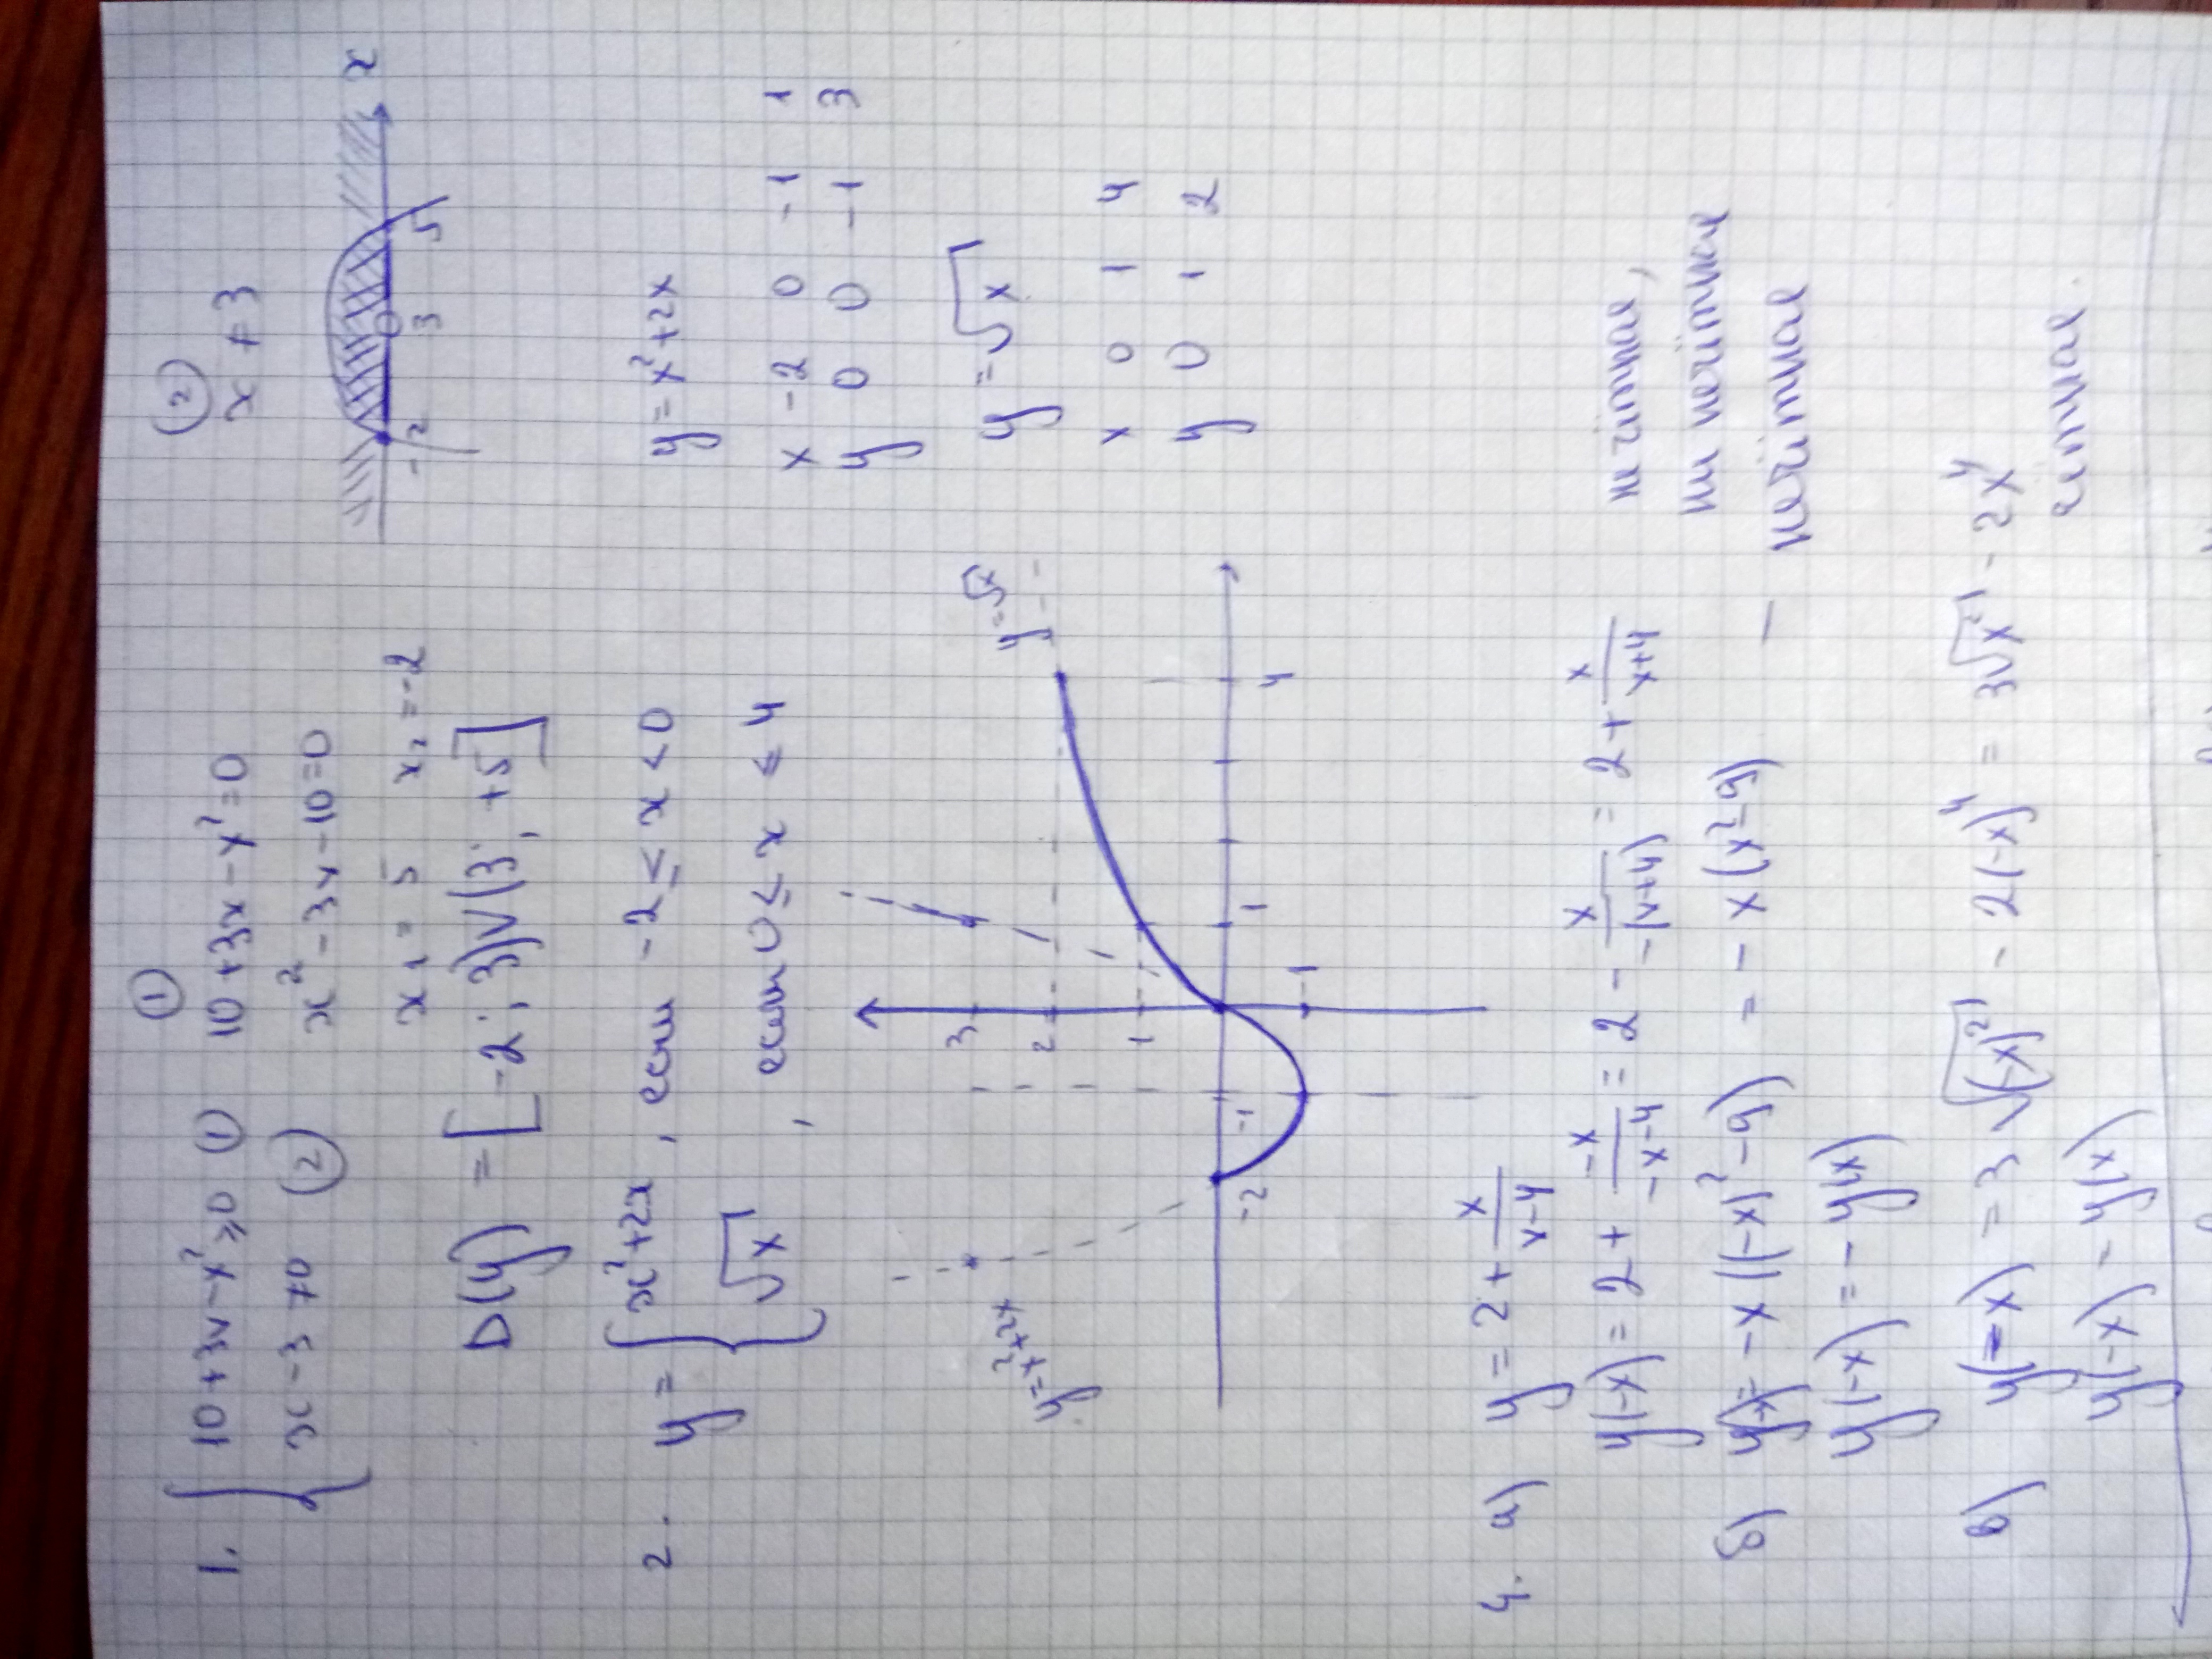 1. { 10+3x-x²≥0 ① ① 10+3x-x²=0 ②
x-3≠0 ② x²-3x-10=0 x≠3
x₁=5 x₂=-2
-2 3 5 x
D(y) = [-2; 3)∨(3; +5]
2. y = { x²+2x, если -2≤x<0 y=x²+2x
√x, если 0≤x≤4 x -2 0 -1 1
y 0 0 -1 3
y=√x
x 0 1 4
y 0 1 2
y=x²+2x y=√x
3
2
1
-2 -1 1 4
-1
4. а) y=2+x/(x-4)
y(-x)=2+(-x)/(-x-4)=2-x/(-(x+4))=2+x/(x+4) ни чётная,
ни нечётная
б) y(-x)=-x((-x)²-9)=-x(x²-9) — нечётная
y(-x)=-y(x)
в) y(-x)=3√(-x)²-2(-x)⁴=3√x²-2x⁴
y(-x)-y(x)